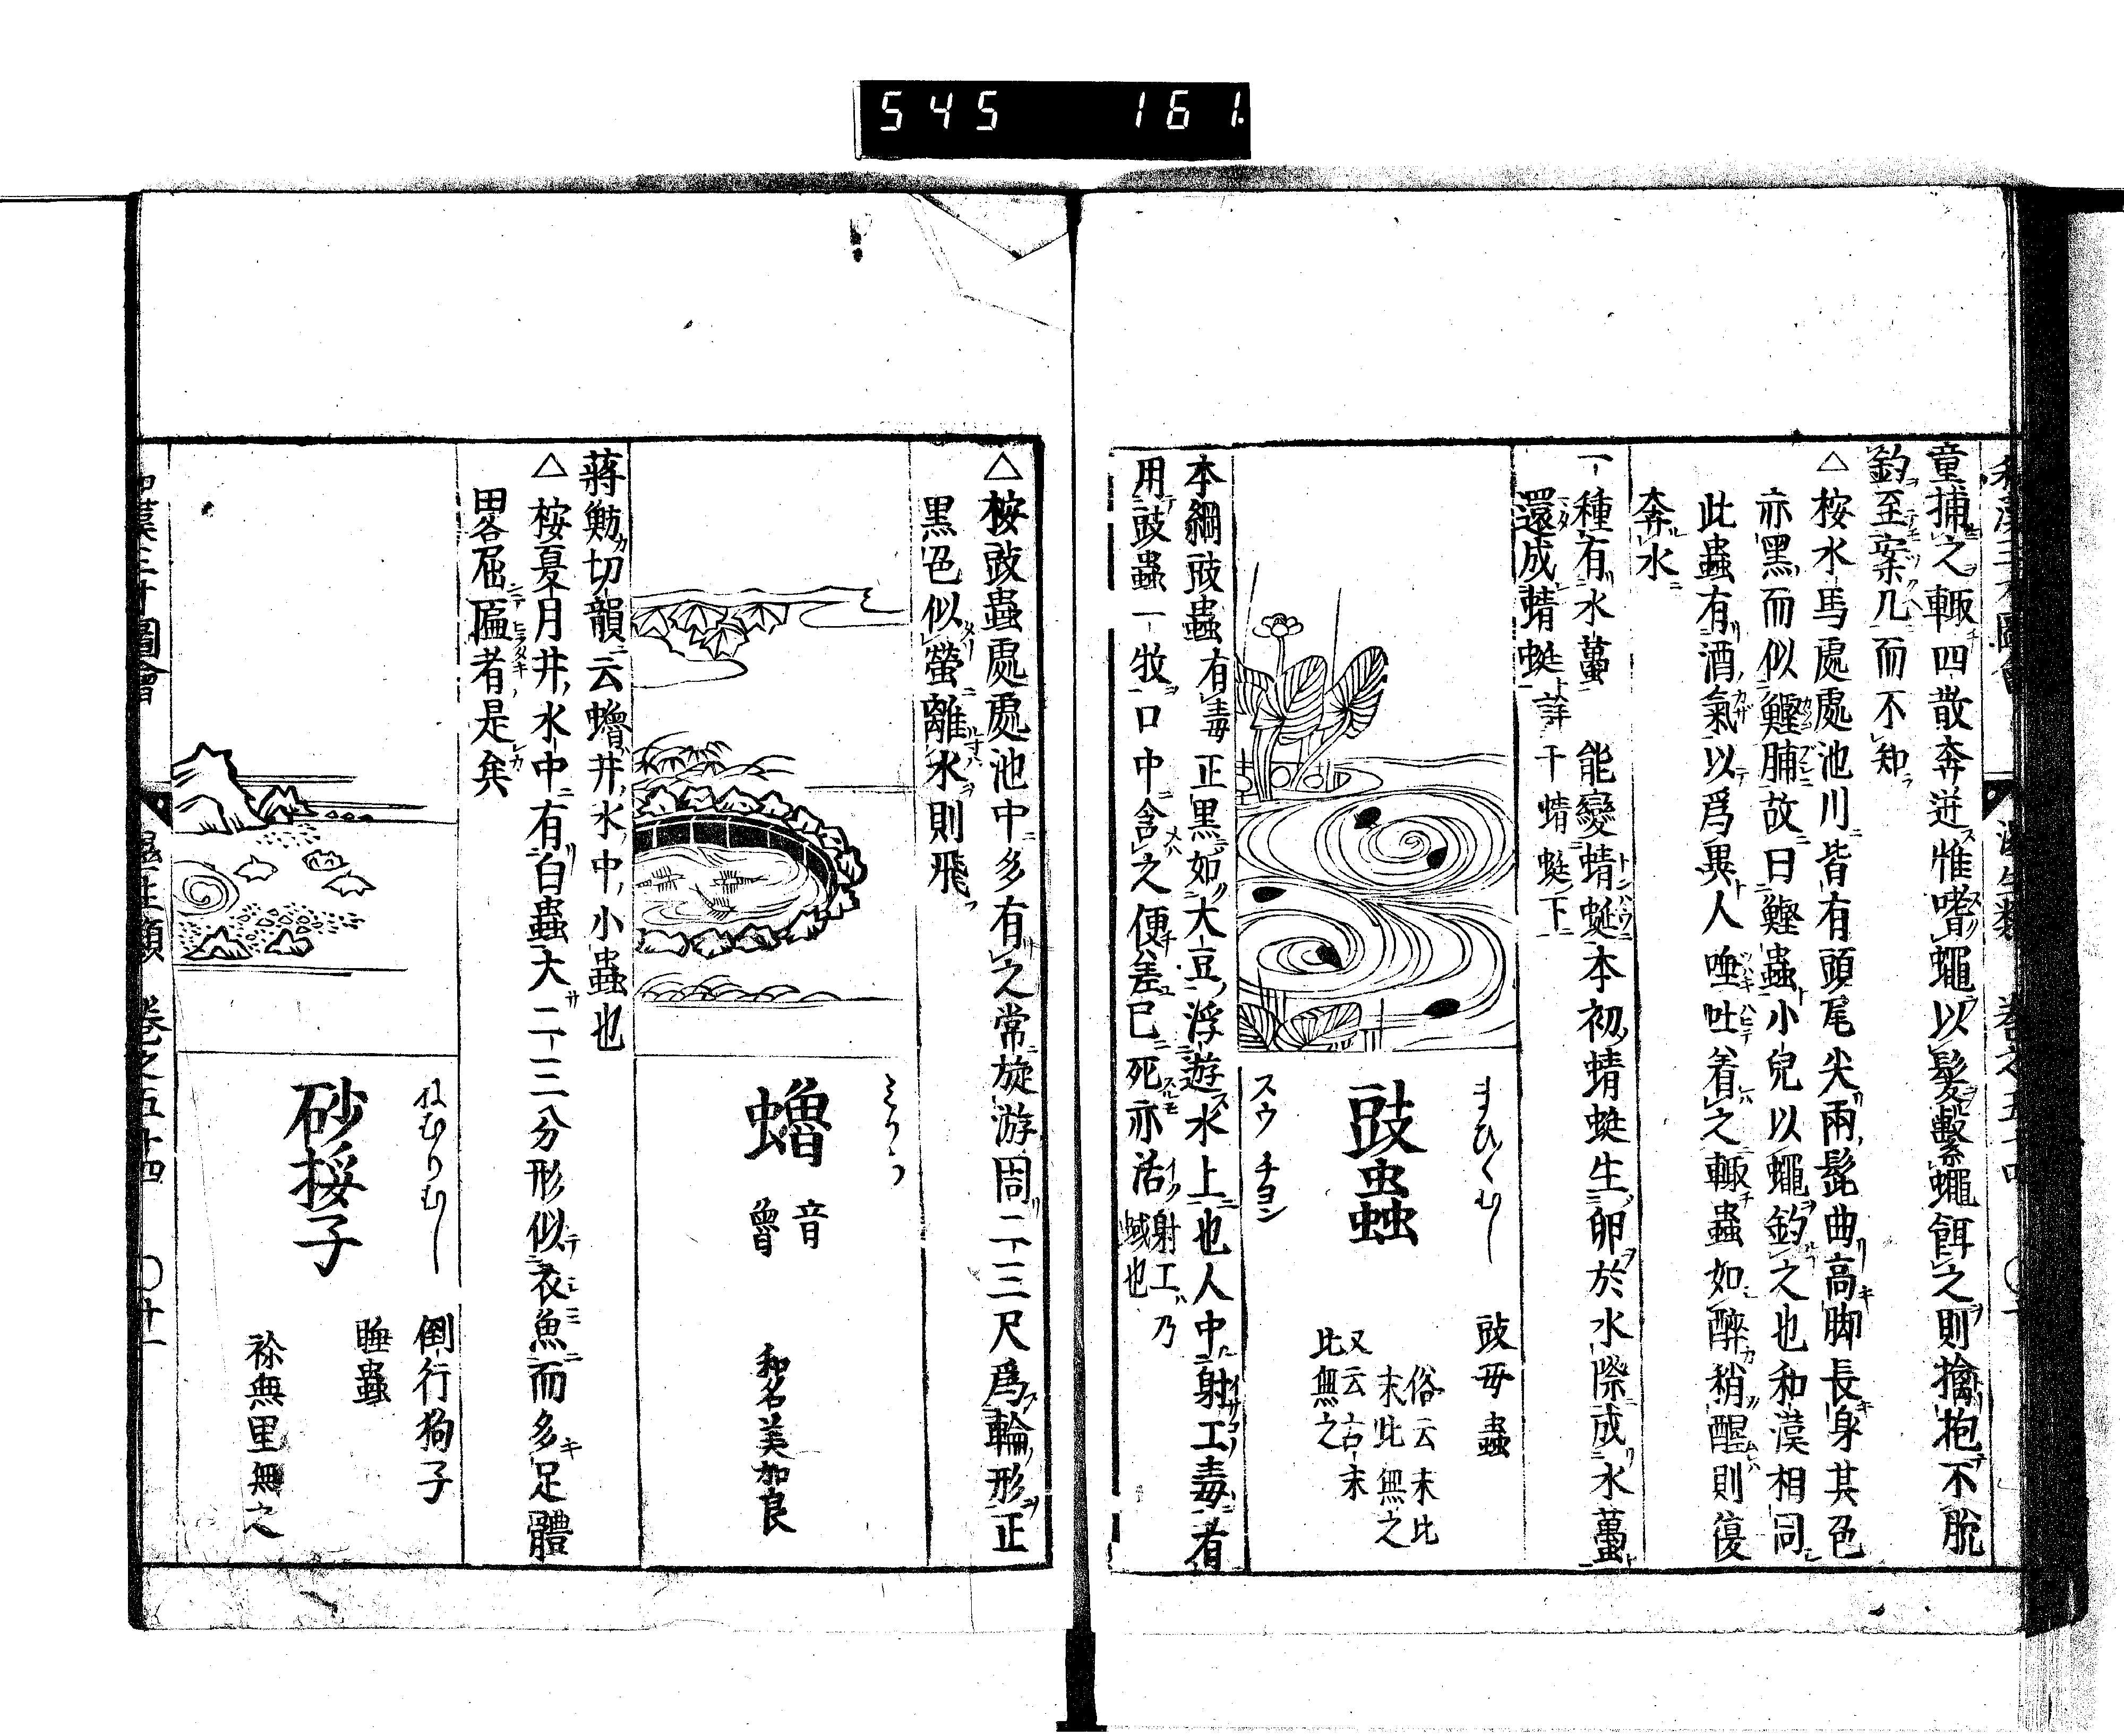 545 161.
童捕之輙四散奔迸惟嗜蠅以髮繫蠅餌之則擒抱不脫
釣至案几而不知
△桉水馬處處池川皆有頭尾尖兩髭曲高脚長身其色
亦黑而似鰹脯故曰鰹蟲小兒以蠅釣之也和漢相同
此蟲有酒氣以爲異人唾吐着之輙蟲如醉稍醒則復
奔水
一種有水蠆 能變蜻蜓本初蜻蜓生卵於水際成水蠆
還成蜻蜓詳干蜻蜓下
まひ〱むし
豉蟲
スウ チヨン
豉毋蟲
俗云末比
末比無之
又云古末
比無之
本綱豉蟲有毒正黑如大豆浮遊水上也人中射工毒有
用豉蟲一牧口中含之便差已死亦活射工乃
蜮也
△桉豉蟲處處池中多有之常旋游周二三尺爲輪形正
黒色似螢離水則飛
蠁
音
和名美加良
蔣魴切韻云蠁井水中小蟲也
△桉夏月井水中有白蟲大二三分形似衣魚而多足體
畧屈匾者是矣
ねむりむし
砂挼子
倒行狗子
睡蟲
袮無里無之
和漢三才圖會 濕生類 卷之五十四 〇十一